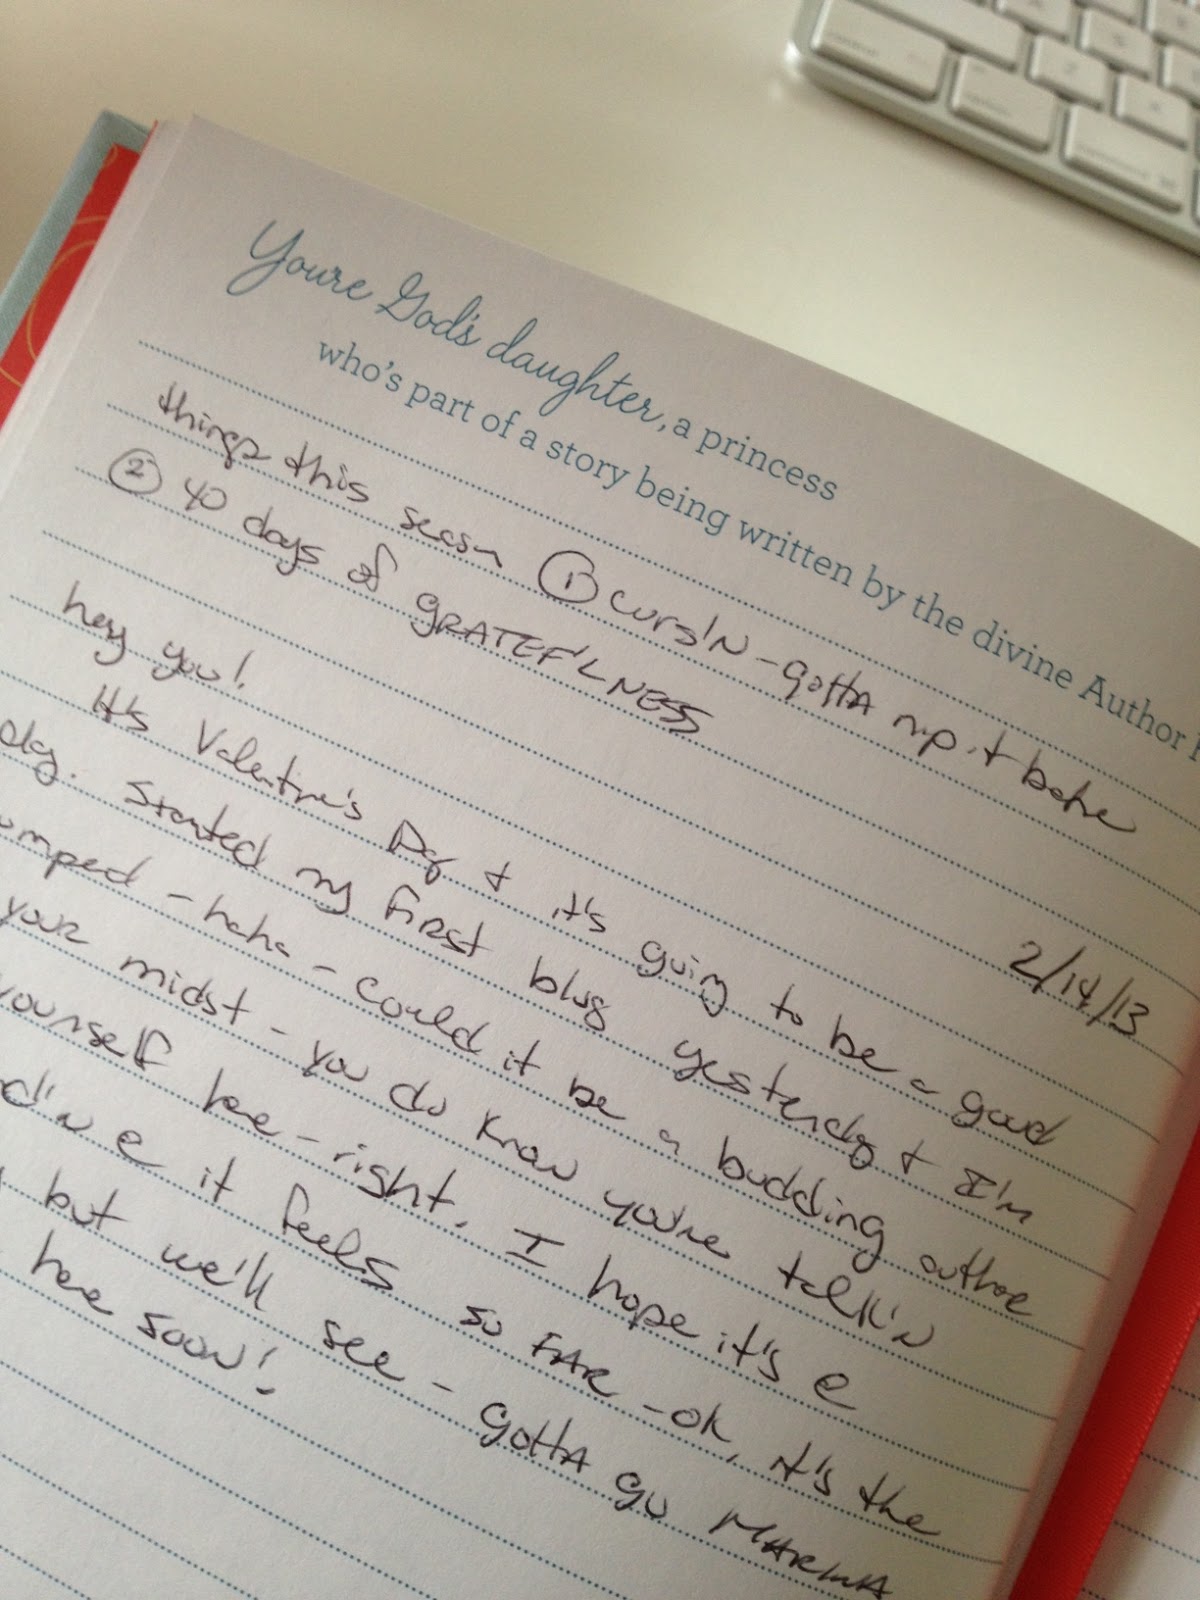 You're God's daughter, a princess
who's part of a story being written by the divine Author
things this season ① curs'N - gotta nip it
② 40 days of GRATEF'LNESS
2/14/13
hey you!
It's Valentine's Day + it's going to be a good
day. Started my first blog yesterday + I'm
omped - haha - could it be a budding author
your midst - you do know you're talk'n
yourself here - right. I hope it's e
d'n e it feels so FAR - ok, it's the
but we'll see - gotta go
here soon!